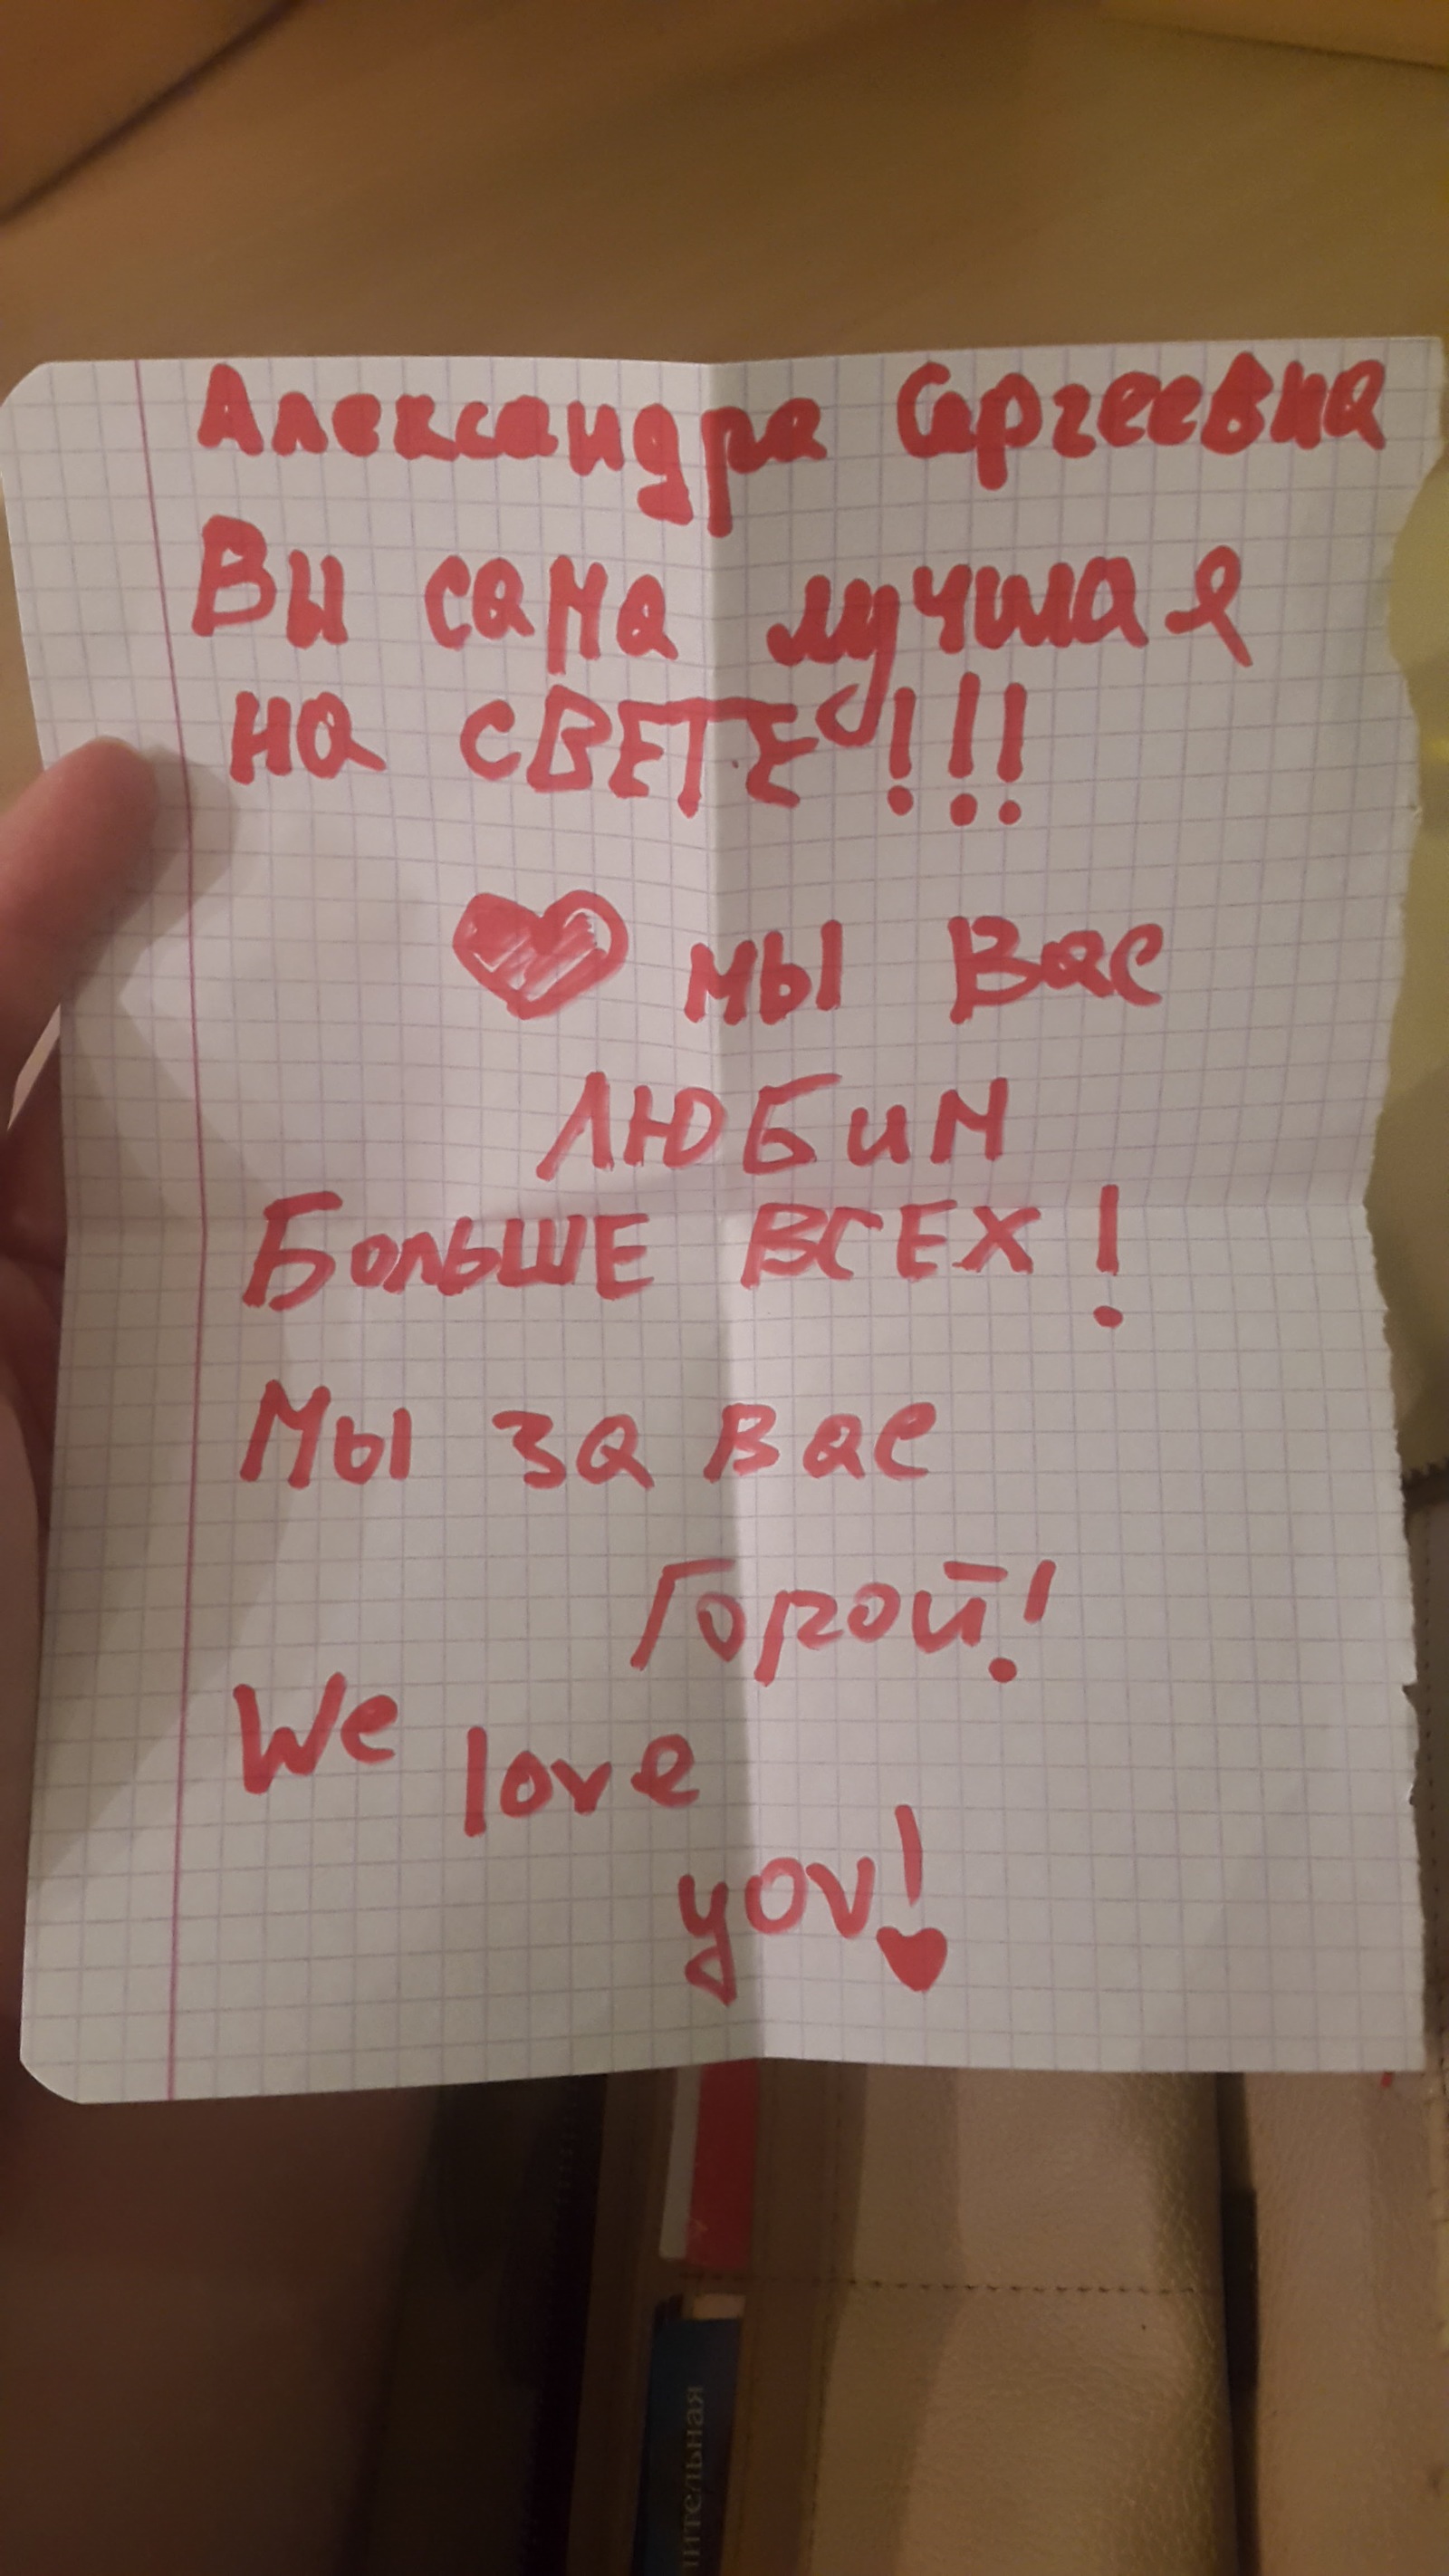 Александра Сергеевна
Вы сама лучшая
на СВЕТЕ!!!
мы Вас
ЛЮБим
БольШЕ ВСЕХ!
Мы за вас
Горой!
We love
you!